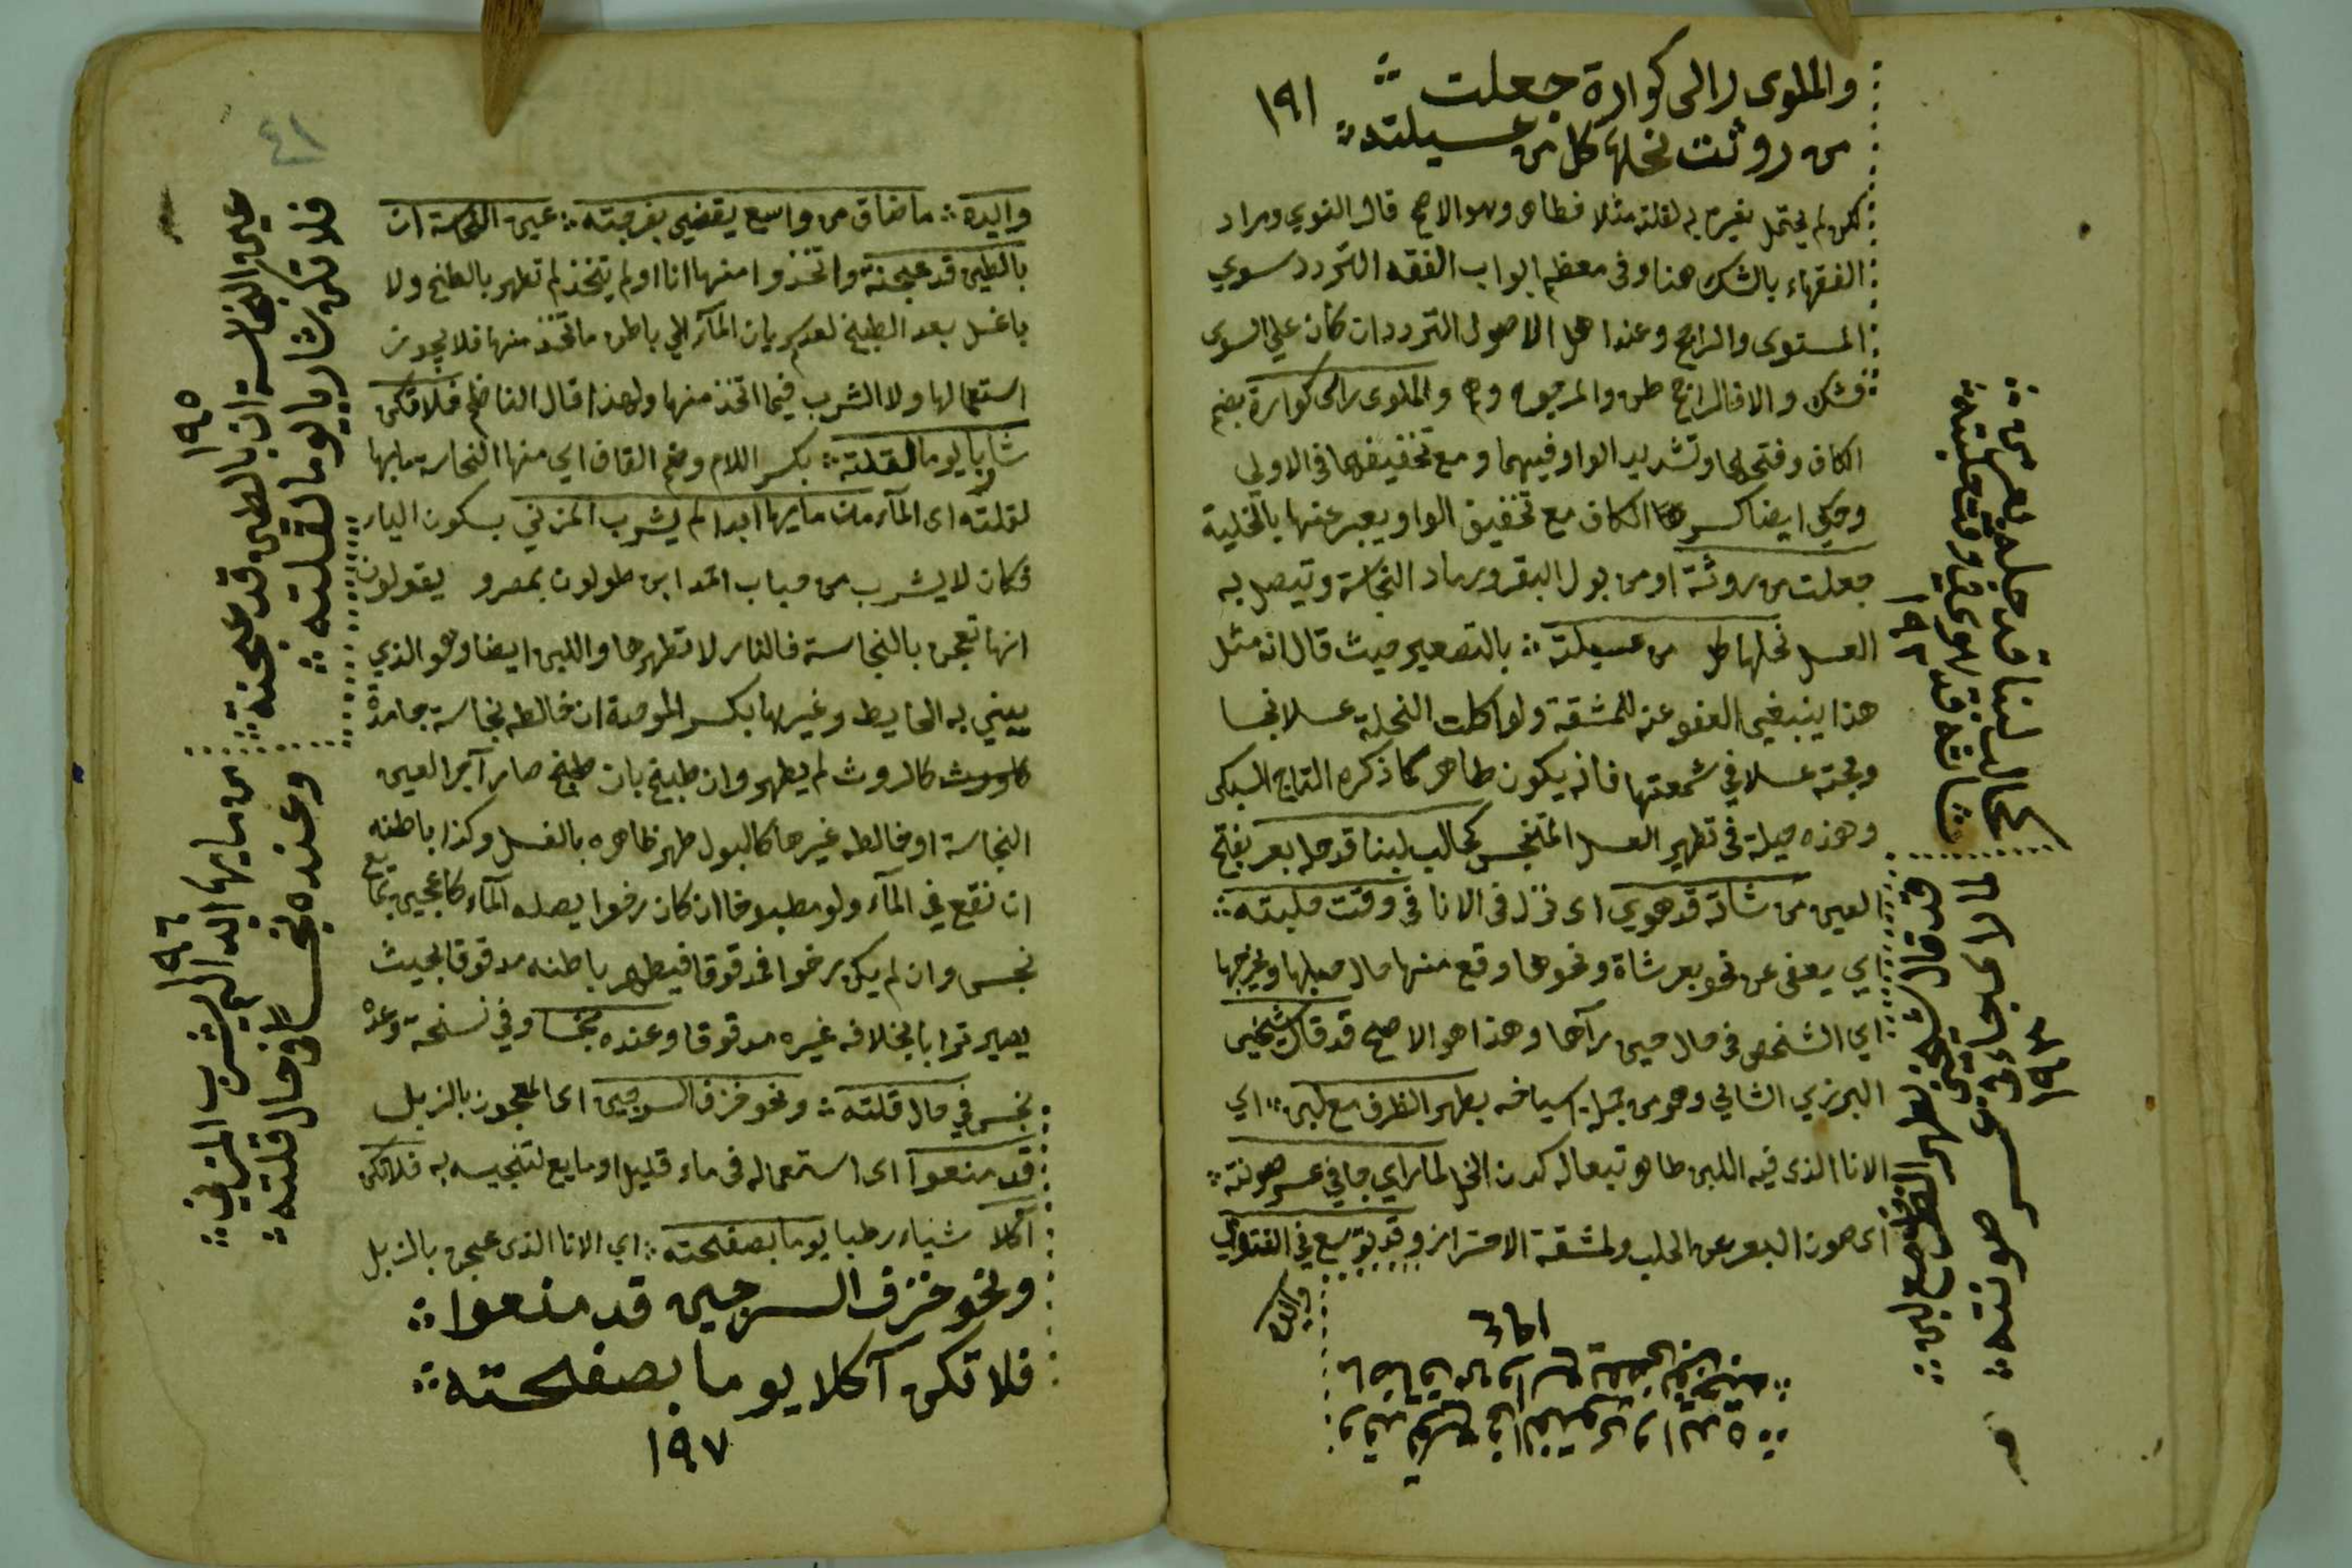 والملوى رالى كوارة جعلت
من روثت نحلها كل من عسيلته
١٩١
لكن لم يحتمل تغيره به لقلته مثلا فطاهر وهو الاصح قال النووي ومراد
الفقهاء بالشك هنا وفى معظم ابواب الفقه التردد سوي
المستوى والراجح وعند اهل الاصول التردد ان كان على السوى
فشك والا فالراجح ظن والمرجوح وهم والملوى راى كوارة بضم
الكاف وفتحها وتشديد الواو فيهما ومع تخفيفها فى الاولى
وحكى ايضا كسر الكاف مع تخفيف الواو ويعبر عنها بالخلية
جعلت من روثة او من بول البقر ورماد النجاسة وتيصل به
العسل نحلها من عسيلته بالتصغير حيث قال انه مثل
هذا ينبغي العفو عنه للمشقة ولو اكلت النحلة عسلا نجسا
ومجته عسلا في شمعتها فانه يكون طاهر كما ذكره التاج السبكى
وهذه حيلة فى تطهير العسل المتنجس كحالب لبنا قد حله بعر بفتح
العين من شاته قد هوي اى نزل فى الانا فى وقت حلبته
اي يعفى عن نحو بعر شاة ونحوها وقع منها حال حلبها ونحوها
اي الشخص فى حال حين رآها وهذا هو الاصح قد قال شيخى
البرنزي الثاني وهو من جملة اسيافه بطهر الظرف مع لبن اي
الانا الذى فيه اللبن طاهر تبعا له كدن الخل لما راي جا فى عسر صونته
اى صون البعر عن الحلب ولمشقة الاحتراز وقد توسع فى الفتوى
والده
كحالب لبنا قد حله بعر من
شاته قد هوى فى وقت حلبته
١٩٢
قد قال شيخى بطهر الظرف مع لبن
لما راى جاء فى عسر صونته
١٩٣
وقد توسع فى الفتوى والده
ما ضاق من واسع يقضي بفرجته
١٩٤
٤١
والده ما ضاق من واسع يقضي بفرجته عين النجاسة ان
بالطين قد عجنة واتخذوا منها انا او لم يتخذ لم تطهر بالطبخ ولا
باغسل بعد الطبخ لعدم سريان المآء الي باطن ما اتخذ منها فلا يجوز
استعمالها ولا الشرب فيما اتخذ منها ولهذا قال الناظم فلا تكن
شاربا يوما لقلته بكسر اللام وضم القاف اي منها النجاسة مايها
لقلته اى المآء من مايها ابدا لم يشرب المزني بسكون اليا
فكان لا يشرب من حباب احمد ابن طولون بمصر ويقولون
انها تعجن بالنجاسة فالنار لا تطهرها واللبن ايضا وهو الذي
يبني به الحايط وغيرها بكسر الموحدة ان خالطه نجاسة جامدة
كالروث لم يطهر وان طبخ بان طبخ صار آجر العين
النجاسة او خالطه غيرها كالبول طهر ظاهره بالغسل وكذا باطنه
ان نقع في المآء ولو مطبوخا ان كان رخوا يصله المآء كالعجين بمايع
نجس وان لم يكن رخوا فمدقوقا فيطهر باطنه مدقوقا بحيث
يصير ترابا بخلافه غيره مدقوقا وعنده نجسا وفي نسخة وعنده
نجس في حال قلته ونحو خزف السرجين اى المعجون بالزبل
قد منعوا اى استعماله فى ماء قليل او مايع لتنجيسه به فلا تكن
آكلا شياء رطبا يوما بصفحته اي الانا الذى عجن بالزبل
ونحو خزف السرجين قد منعوا
فلا تكن آكلا يوما بصفحته
١٩٧
عين النجاسة ان بالطين قد عجنة
فلا تكن شاربا يوما لقلته
١٩٥
من مايها ابدا لم يشرب المزني
وعنده نجسا فى حال قلته
١٩٦